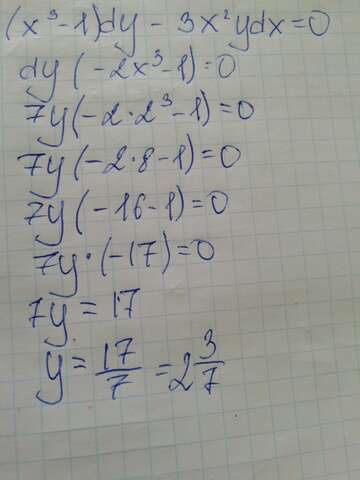 (x³-1)dy - 3x²ydx=0
dy(-2x³-1)=0
7y(-2·2³-1)=0
7y(-2·8-1)=0
7y(-16-1)=0
7y·(-17)=0
7y=17
y=17/7=2 3/7